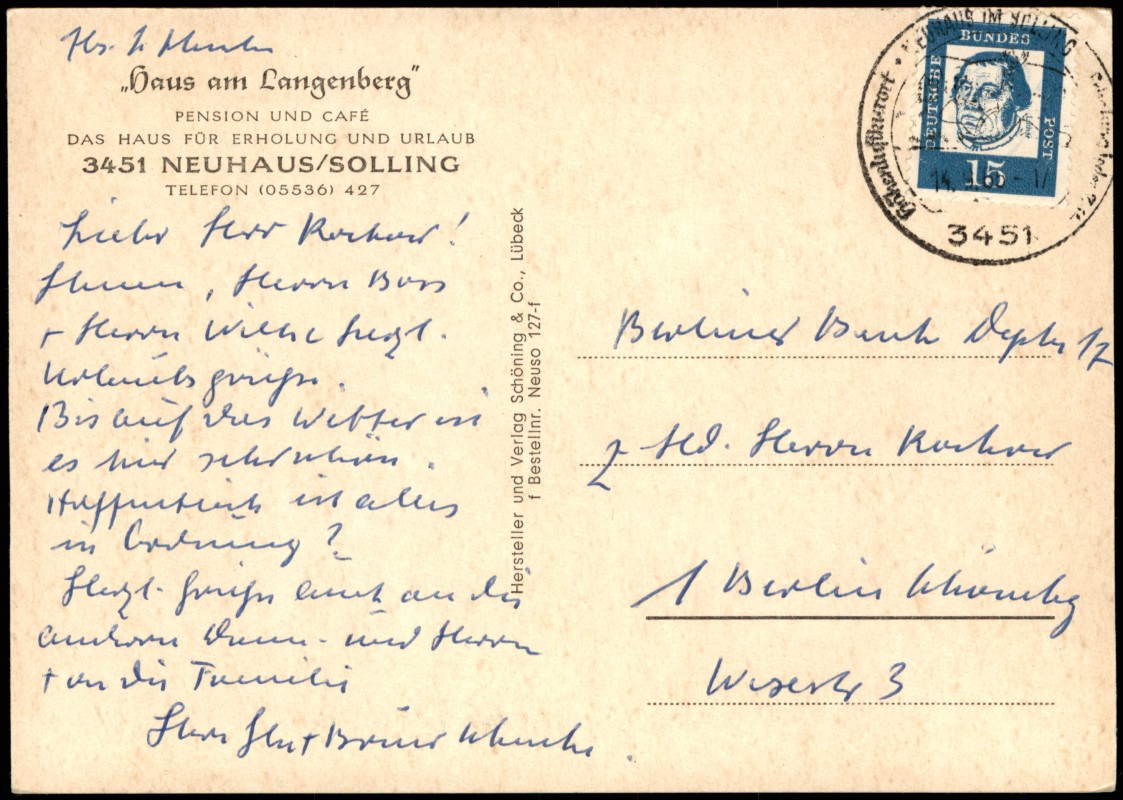 „Haus am Langenberg“
PENSION UND CAFÉ
DAS HAUS FÜR ERHOLUNG UND URLAUB
3451 NEUHAUS/SOLLING
TELEFON (05536) 427
Lieber Herr Rochow!
Ihnen, Herrn Boss
+ Herrn Wilke herzl.
Urlaubsgrüße.
Bis auf das Wetter ist
es hier sehr schön.
Hoffentlich ist alles
in Ordnung?
Herzl. Grüße auch an die
anderen Damen und Herren
+ an die Familie
Hersteller und Verlag Schöning & Co., Lübeck
f Bestellnr. Neuso 127-f
NEUHAUS IM SOLLING
Höhenluftkurort
3451
DEUTSCHE BUNDES POST
15
Berliner Bank Depka 12
z. Hd. Herrn Rochow
1 Berlin
Weserstr 3